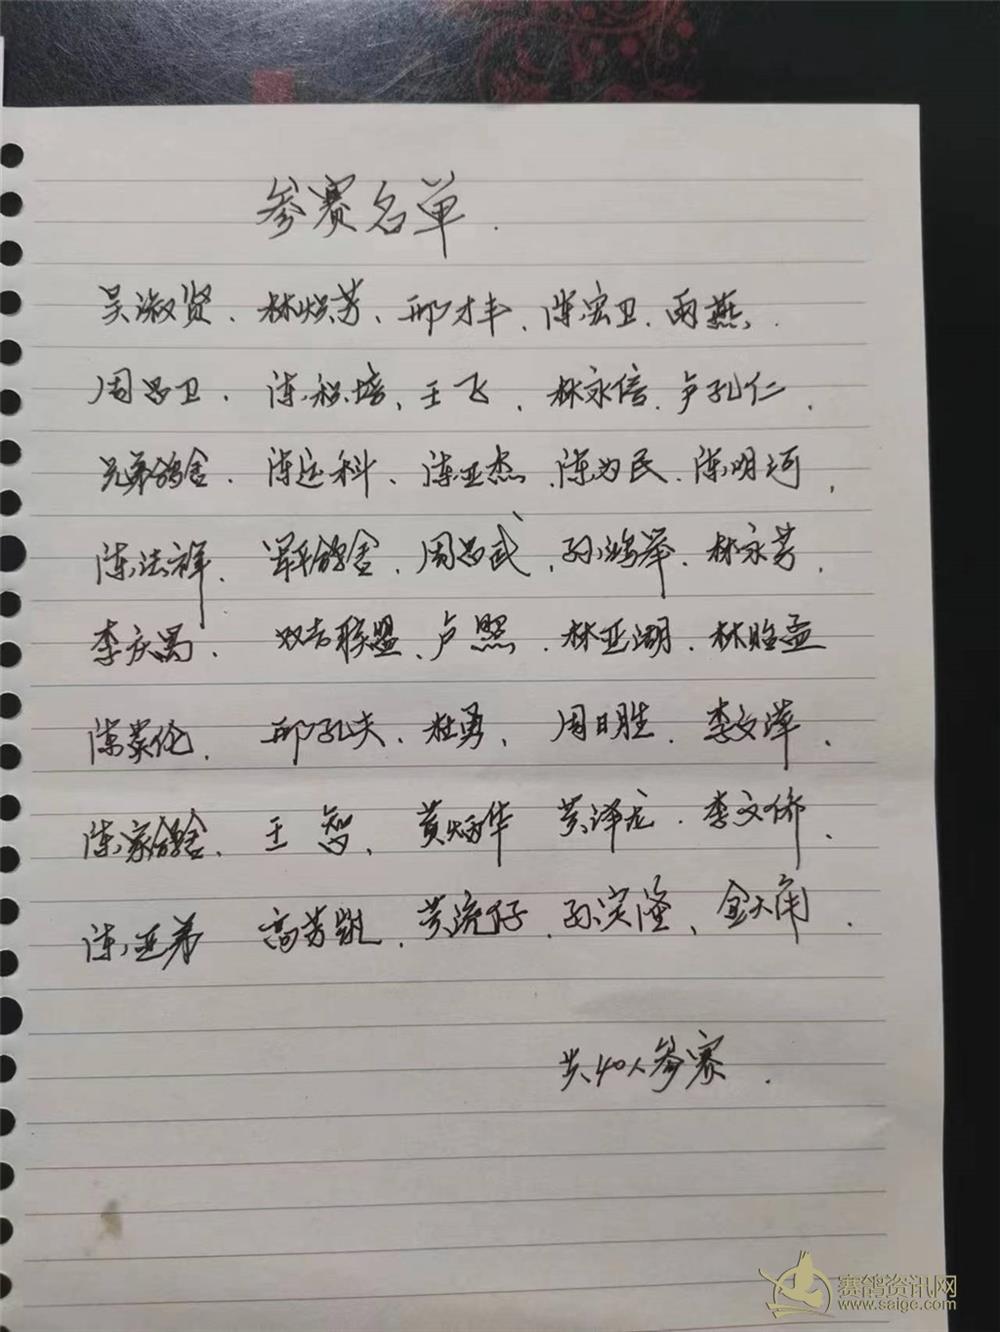 参赛名单.
吴淑贤、林炽芳、邢才丰、陈宏卫、雨燕,
周昌卫、陈积培、王飞、林永信、卢孔仁、
兄弟鸽舍、陈运科、陈亚杰、陈为民、陈明河,
陈法祥、军平鸽舍、周昌武、孙鸿举、林永芳,
李庆 双吉联盟、卢照、林亚湖、林贻孟
陈 伦、邢孔夫、杜勇、周日胜、李文泽、
陈家鸽舍、王智、黄炳华 黄泽龙、李文侨、
陈亚弟 高芳凯、黄流仔、孙实隆、金大角、
共40人参赛.
赛鸽资讯网
www.saige.com